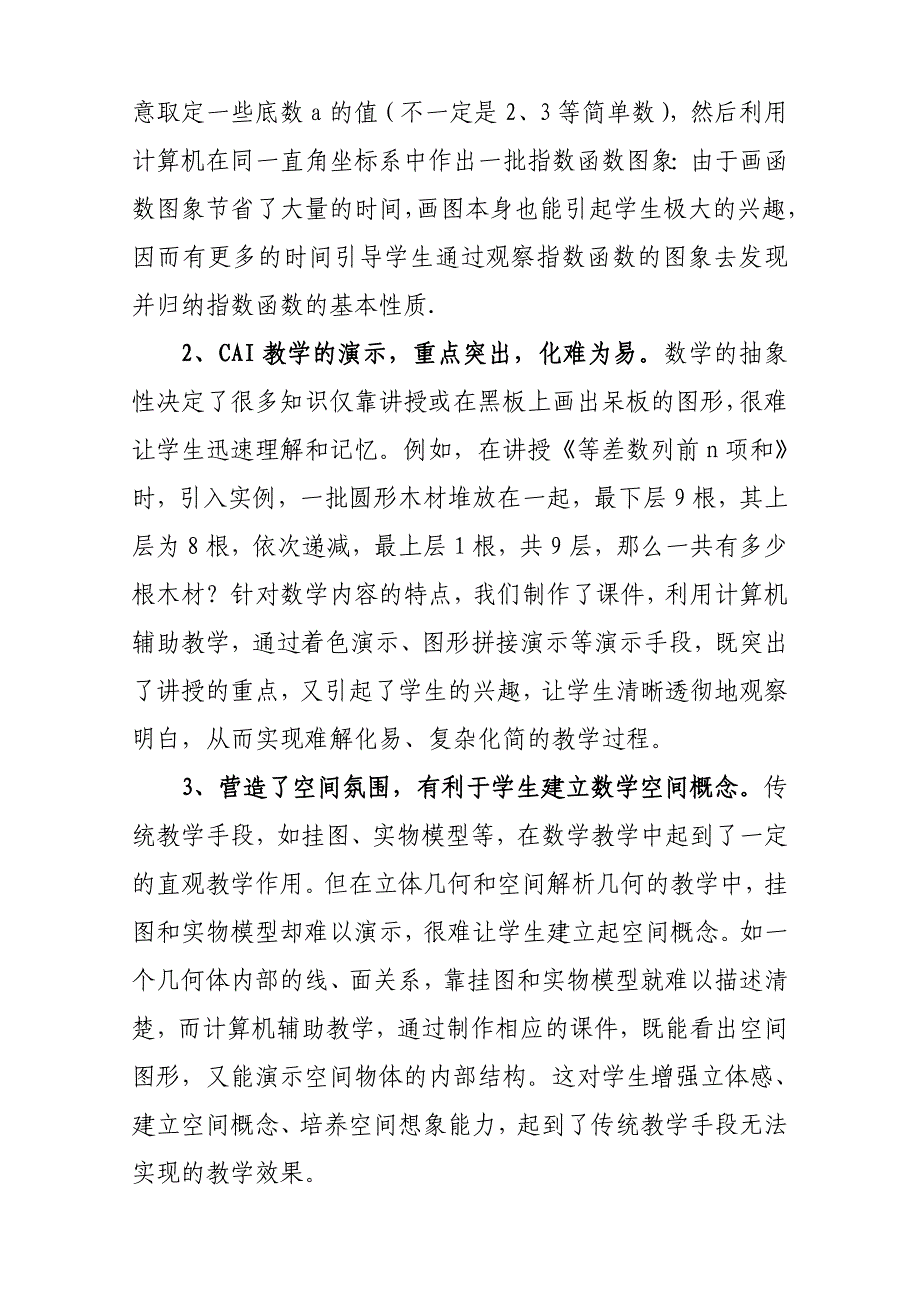 意取定一些底数a的值(不一定是2、3等简单数),然后利用
计算机在同一直角坐标系中作出一批指数函数图象:由于画函
数图象节省了大量的时间,画图本身也能引起学生极大的兴趣,
因而有更多的时间引导学生通过观察指数函数的图象去发现
并归纳指数函数的基本性质.
2、CAI教学的演示，重点突出，化难为易。数学的抽象
性决定了很多知识仅靠讲授或在黑板上画出呆板的图形,很难
让学生迅速理解和记忆。例如，在讲授《等差数列前n项和》
时，引入实例，一批圆形木材堆放在一起，最下层9根，其上
层为8根，依次递减，最上层1根，共9层，那么一共有多少
根木材？针对数学内容的特点，我们制作了课件，利用计算机
辅助教学，通过着色演示、图形拼接演示等演示手段，既突出
了讲授的重点，又引起了学生的兴趣，让学生清晰透彻地观察
明白，从而实现难解化易、复杂化简的教学过程。
3、营造了空间氛围，有利于学生建立数学空间概念。传
统教学手段，如挂图、实物模型等，在数学教学中起到了一定
的直观教学作用。但在立体几何和空间解析几何的教学中，挂
图和实物模型却难以演示，很难让学生建立起空间概念。如一
个几何体内部的线、面关系，靠挂图和实物模型就难以描述清
楚，而计算机辅助教学，通过制作相应的课件，既能看出空间
图形，又能演示空间物体的内部结构。这对学生增强立体感、
建立空间概念、培养空间想象能力，起到了传统教学手段无法
实现的教学效果。